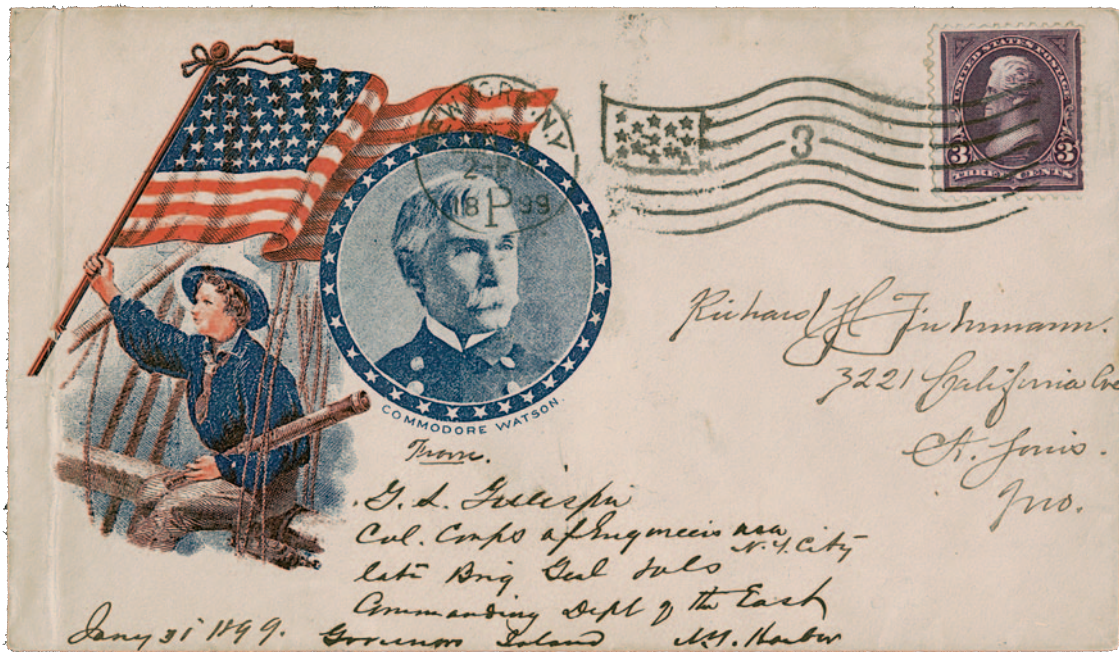 NEW YORK, N.Y.
2-PM
18 P 99
3
UNITED STATES POSTAGE
3 3
THREE CENTS
COMMODORE WATSON.
Richard H Fuhrmann.
3221 California
St. Louis.
Mo.
From.
G. L. Gillespie
Col. Corps of Engineers USA
N.Y. City
late Brig Genl Vols
Commanding Dept of the East
Governors Island N.Y. Harbor
Jany 31 1899.